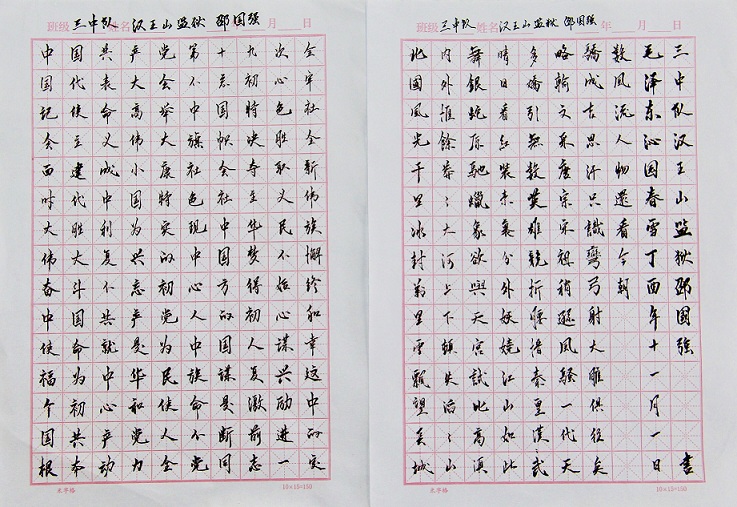 班级 三中队 姓名 汉王山监狱 邵国强 月 日
中国共产党第十九次全
国代表大会不忘初心牢
记使命高举中国特色社
会主义伟大旗帜决胜全
面建成小康社会夺取新
时代中国特色社主义伟
大胜利为实现中华民族
伟大复兴的中国梦不懈
奋斗不忘初心方得始终
中国共产党人的初心和
使命就是为中国人谋幸
福为中华民族谋复兴这
个初心和使命是激励中
国共产党人不断前进的
根本动力全党同志一
米字格 10×15=150
班级 三中队 姓名 汉王山监狱 邵国强 年 月 日
北國風光千里冰封萬里雪飄望長城
内外惟餘莽〻大河上下頓失滔〻山
舞銀蛇原馳蠟象欲與天宮試比高須
晴日看紅裝素裹分外妖嬈江山如此
多嬌引無數英雄競折腰惜秦皇漢武
略輸文采唐宗宋祖稍遜風騷一代天
驕成吉思汗只識彎弓射大雕俱往矣
數風流人物還看今朝
毛泽东沁园春雪丁酉年十一月一日
三中队汉王山监狱邵国强書
米字格 10×15=150